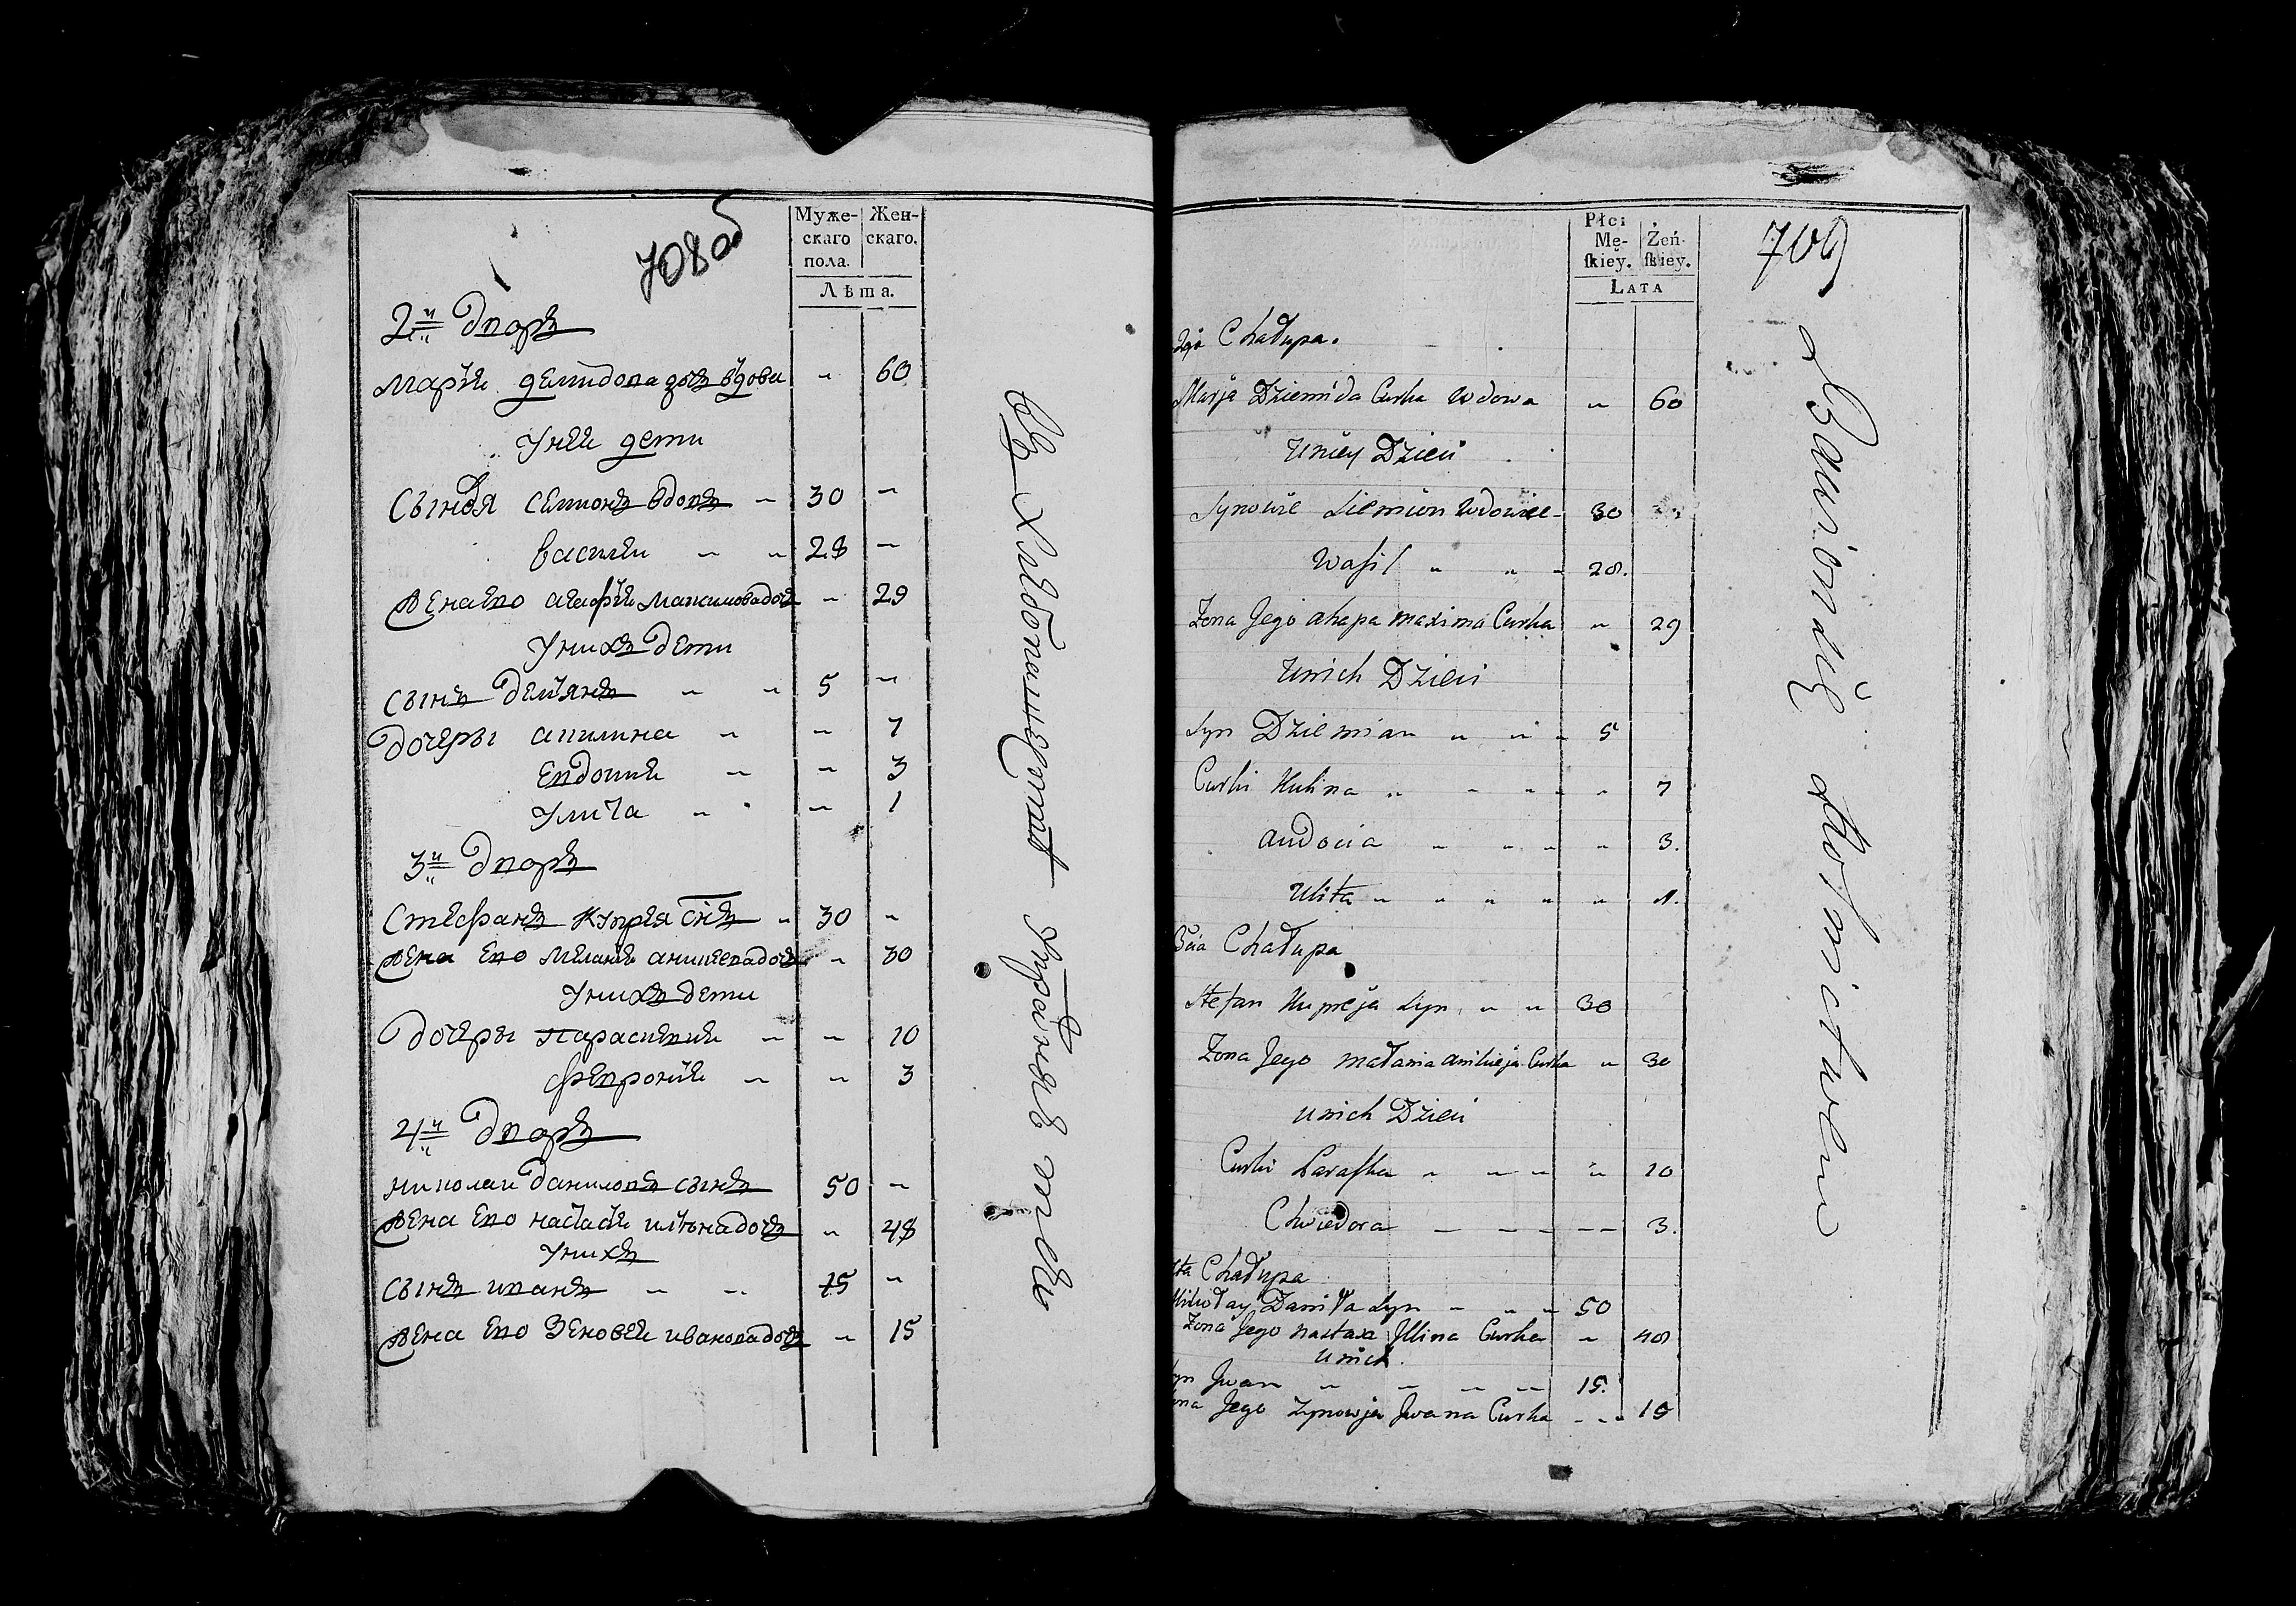 708 об
Муже-
скаго
пола.
Жен-
скаго.
Лѣта.
2й Дворъ
Марѣя Демидова дочь вдова " 60
У нея дети
Сыновя Семионъ вдовъ " 30 "
Василей " " 28 "
Жена ево Агафѣя Максимова дочь " 29
У нихъ дети
Сынъ Демянъ " " 5 "
Дочеры Акилина " " 7
Евдокия " " 3
Улита " " 1
3й Дворъ
Стефанъ Купрея снъ " 30 "
Жена ево Меланья Аникеева дочь " 30
У нихъ дети
Дочеры Парасковия " " 10
Февронея " " 3
4й Дворъ
Николай Даниловъ сынъ 50 "
Жена ево Настася Ильина дочь " 48
У нихъ
Сынъ Иванъ " " 15 "
Жена ево Зеновея Иванова дочь " 15
Управляя
Płci
Mę-
ſkiey.
Żeń-
ſkiey.
LATA
709
2ga Chałupa.
Marja Dziemida Curka Wdowa " 60
U niey Dzieci
Synowie Siemion Wdowiec 30
Waſil " " " 28.
Żona Jego Ahapa Maxima Curka " 29
U nich Dzieci
Syn Dziemian " " " 5
Curki Kulina " " " " 7
Audocia " " " " 3.
Ulita " " " " " 1.
3cia Chałupa
Stefan Kupreja Syn " " 30
Żona Jego Małania Anikieja Curka " 30
U nich Dzieci
Curki Paraſka " " " " 10
Chwiedora 3.
4ta Chałupa
Mikołay Daniła Syn " " " 50
Żona Jego Nastaza Jllina Curka " 48
U nich.
Syn Jwan " " " " 15.
Żona Jego Zynowja Jwana Curka 15